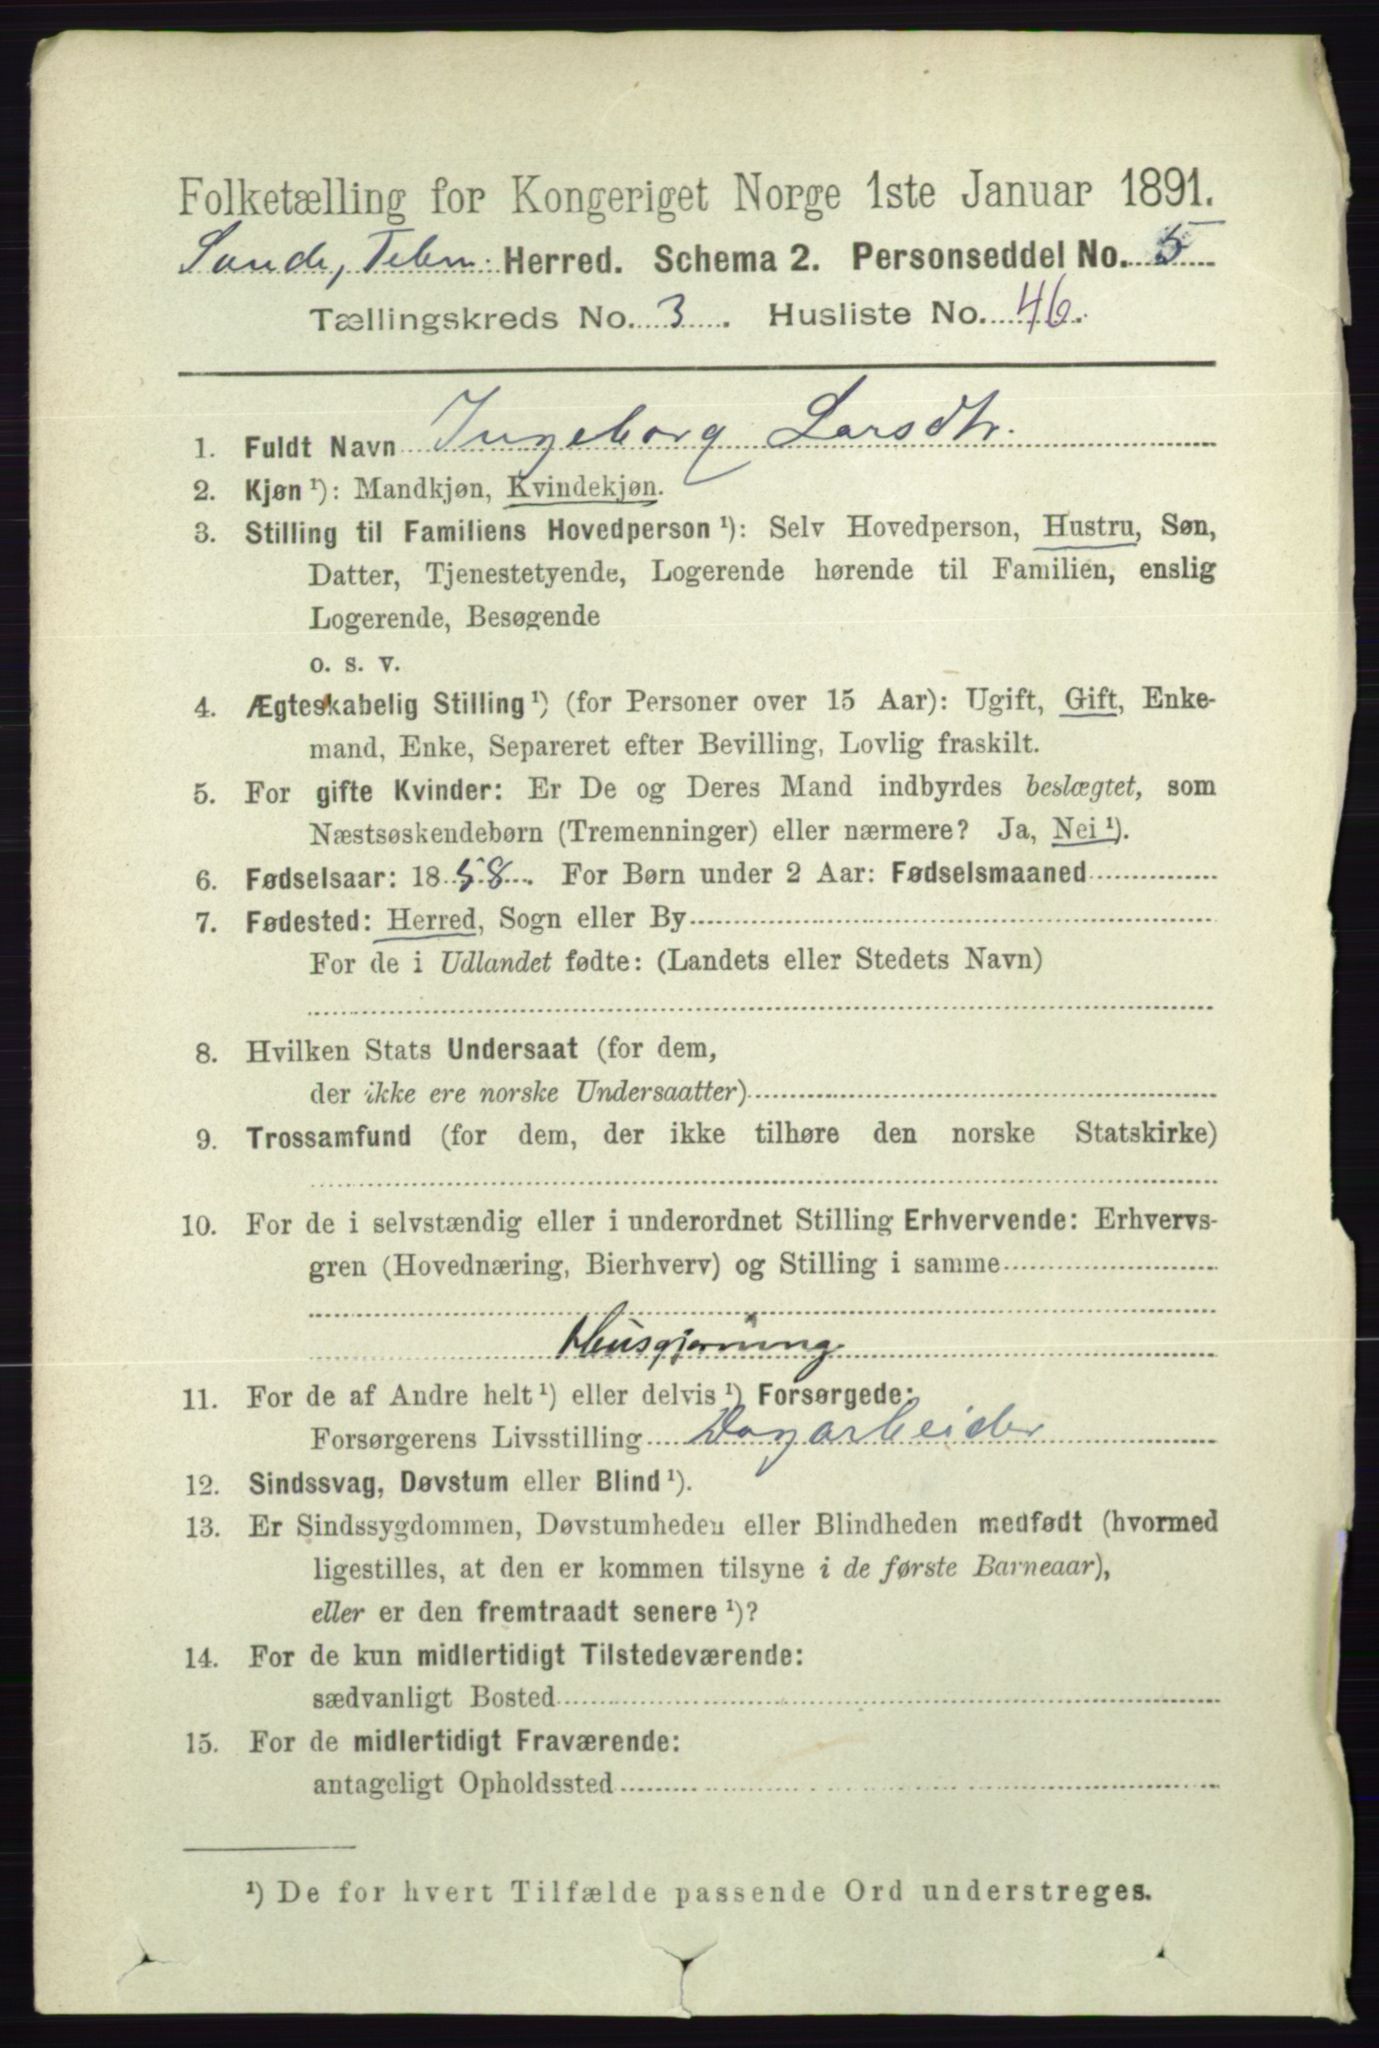 Folketælling for Kongeriget Norge 1ste Januar 1891.
Sande, Telem. Herred. Schema 2. Personseddel No. 5
Tællingskreds No. 3. Husliste No. 46.
1. Fuldt Navn Ingeborg Larsdtr.
2. Kjøn ¹): Mandkjøn, Kvindekjøn.
3. Stilling til Familiens Hovedperson ¹): Selv Hovedperson, Hustru, Søn,
Datter, Tjenestetyende, Logerende hørende til Familien, enslig
Logerende, Besøgende
o. s. v.
4. Ægteskabelig Stilling ¹) (for Personer over 15 Aar): Ugift, Gift, Enke-
mand, Enke, Separeret efter Bevilling, Lovlig fraskilt.
5. For gifte Kvinder: Er De og Deres Mand indbyrdes beslægtet, som
Næstsøskendebørn (Tremenninger) eller nærmere? Ja, Nei ¹).
6. Fødselsaar: 1858. For Børn under 2 Aar: Fødselsmaaned
7. Fødested: Herred, Sogn eller By
For de i Udlandet fødte: (Landets eller Stedets Navn)
8. Hvilken Stats Undersaat (for dem,
der ikke ere norske Undersaatter)
9. Trossamfund (for dem, der ikke tilhøre den norske Statskirke)
10. For de i selvstændig eller i underordnet Stilling Erhvervende: Erhvervs-
gren (Hovednæring, Bierhverv) og Stilling i samme
Husgjerning
11. For de af Andre helt ¹) eller delvis ¹) Forsørgede:
Forsørgerens Livsstilling Dagarbeider
12. Sindssvag, Døvstum eller Blind ¹).
13. Er Sindssygdommen, Døvstumheden eller Blindheden medfødt (hvormed
ligestilles, at den er kommen tilsyne i de første Barneaar),
eller er den fremtraadt senere ¹)?
14. For de kun midlertidigt Tilstedeværende:
sædvanligt Bosted
15. For de midlertidigt Fraværende:
antageligt Opholdssted
¹) De for hvert Tilfælde passende Ord understreges.